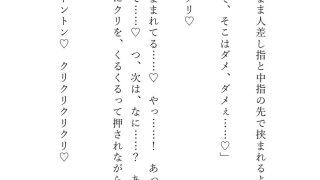 まま人差し指と中指の先で挟まれるよ
、そこはダメ、ダメぇ……♡」
リ♡
まれてる……♡　やっ……！　あっ
……♡　つ、次は、なに……？　あ
にクリを、くるくるって押されながら
ントン♡　クリクリクリクリ♡